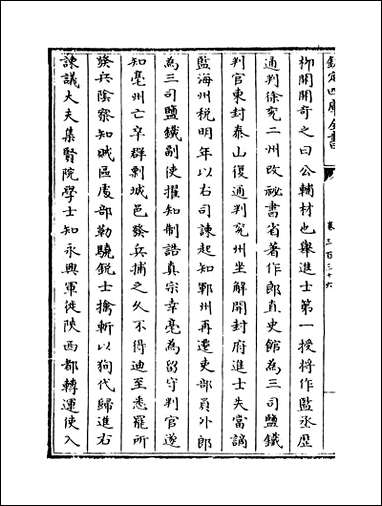 欽定四庫全書
卷三百三十六
柳開開奇之曰公輔材也舉進士第一授將作監丞歷
通判徐兗二州改祕書省著作郎直史館為三司鹽鐵
判官東封泰山復通判兗州坐解開封府進士失當謫
監海州稅明年以右司諫起知鄆州再遷吏部員外郎
為三司鹽鐵副使擢知制誥真宗幸亳為留守判官遂
知亳州亡卒群剽城邑發兵捕之久不得迪至悉罷所
發兵陰察知賊區處部勒驍銳士擒斬以狥代歸進右
諫議大夫集賢院學士知永興軍徙陜西都轉運使入